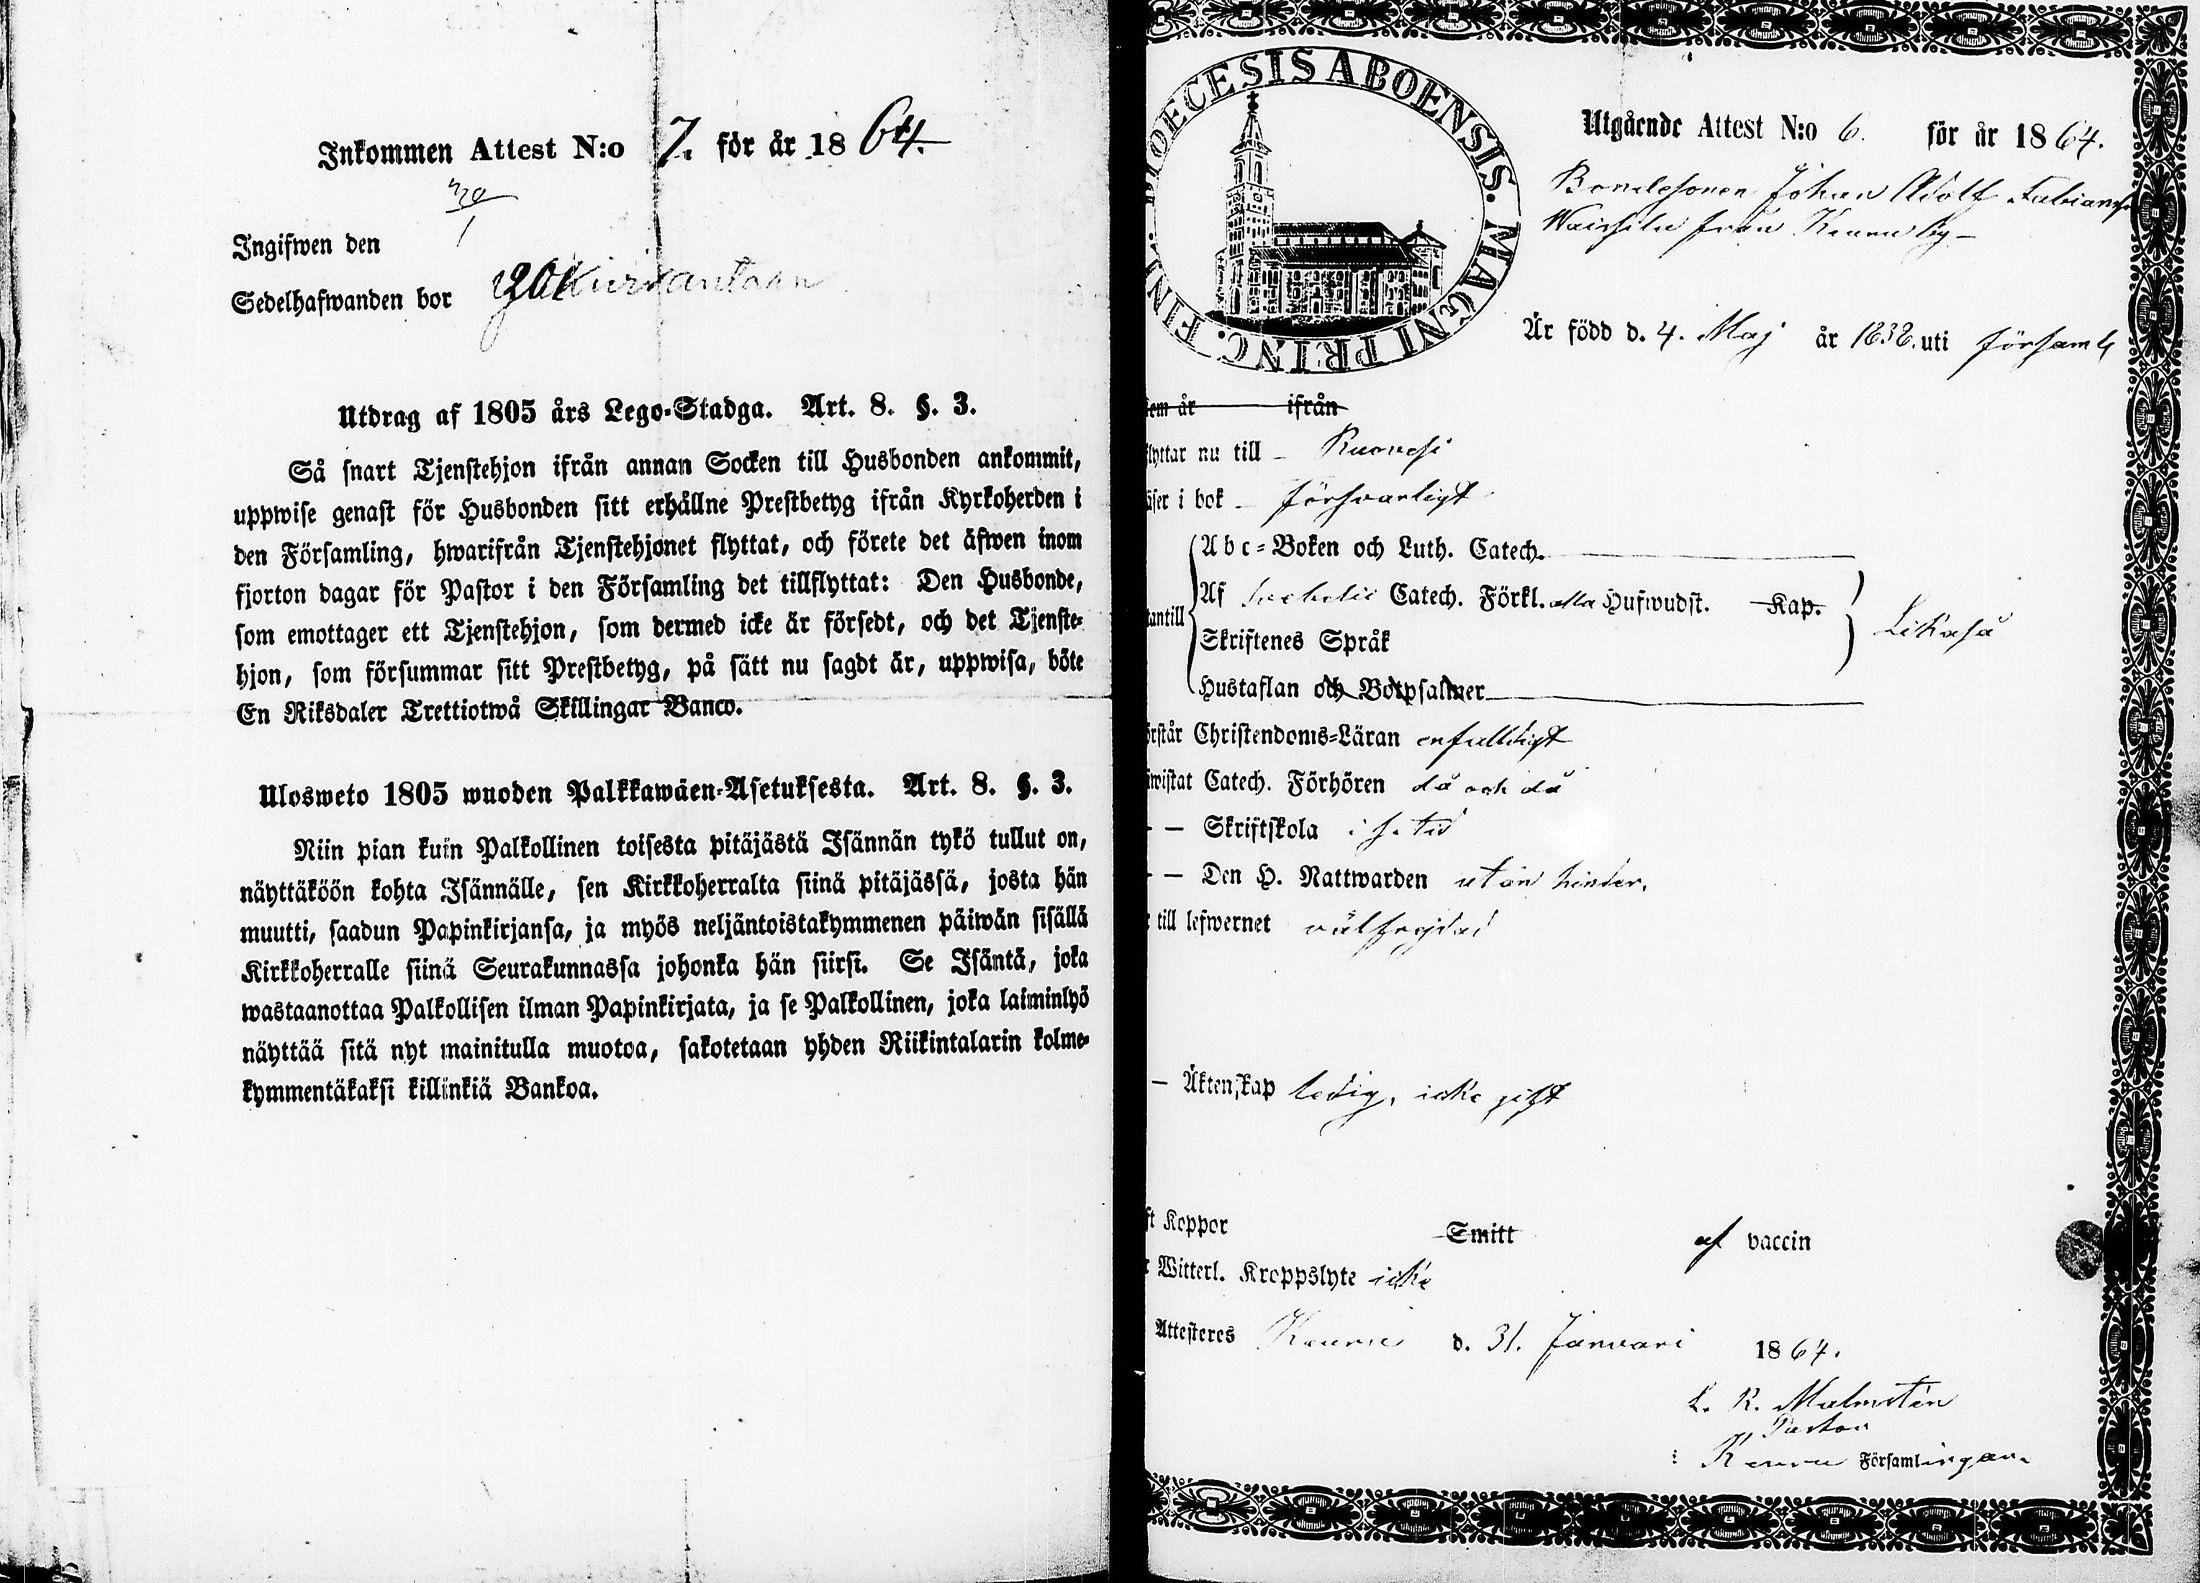 Inkommen Attest N:o 7. för år 1864.
Ingifwen den
Sedelhafwanden bor
Utdrag af 1805 års Lego-Stadga. Art. 8. §. 3.
Så snart Tjenstehjon ifrån annan Socken till Husbonden ankommit,
uppwise genast för Husbonden sitt erhållne Prestbetyg ifrån Kyrkoherden i
den Församling, hwarifrån Tjenstehjonet flyttat, och förete det äfwen inom
fjorton dagar för Pastor i den Församling det tillflyttat: Den Husbonde,
som emottager ett Tjenstehjon, som dermed icke är försedt, och det Tjenste-
hjon, som försummar sitt Prestbetyg, på sätt nu sagdt är, uppwisa, böte
En Riksdaler Trettiotwå Skillingar Banco.
Ulosweto 1805 wuoden Palkkawäen-Asetuksesta. Art. 8. §. 3.
Niin pian kuin Palkollinen toisesta pitäjästä Isännän tykö tullut on,
näyttäköön kohta Isännälle, sen Kirkkoherralta siinä pitäjässä, josta hän
muutti, saadun Papinkirjansa, ja myös neljäntoistakymmenen päiwän sisällä
Kirkkoherralle siinä Seurakunnassa johonka hän siirsi. Se Isäntä, joka
wastaanottaa Palkollisen ilman Papinkirjata, ja se Palkollinen, joka laiminlyö
näyttää sitä nyt mainitulla muotoa, sakotetaan yhden Riikintalarin kolme-
kymmentäkaksi killinkiä Bankoa.
DIOECESIS ABOENSIS. MAGNI PRINC. FINL.
Utgående Attest N:o 6. för år 1864.
Bondesonen Johan Adolf Fabians
från Keuru by
Är född d. 4. Maj år 1838. uti församl
kem år ifrån
flyttar nu till Ruovesi
läser i bok försvarligt
Abc-Boken och Luth. Catech.
Af Svebelii Catech. Förkl. alla Hufwudst. Kap.
utantill Likaså
Skriftenes Språk
Hustaflan och Botpsalmer
örstår Christendoms-Läran enfalldigt
iwistat Catech. Förhören då och då
- — Skriftskola i s. tid
- — Den H. Nattwarden utan hinder.
r till lefwernet välfrejdad
— Äktenskap ledig, icke gift
ft Koppor Smitt af vaccin
r Witterl. Kroppslyte icke
Attesteres Keuru d. 31. Januari 1864.
L. R. Malmstén
Pastor
i Keuru Församlingar